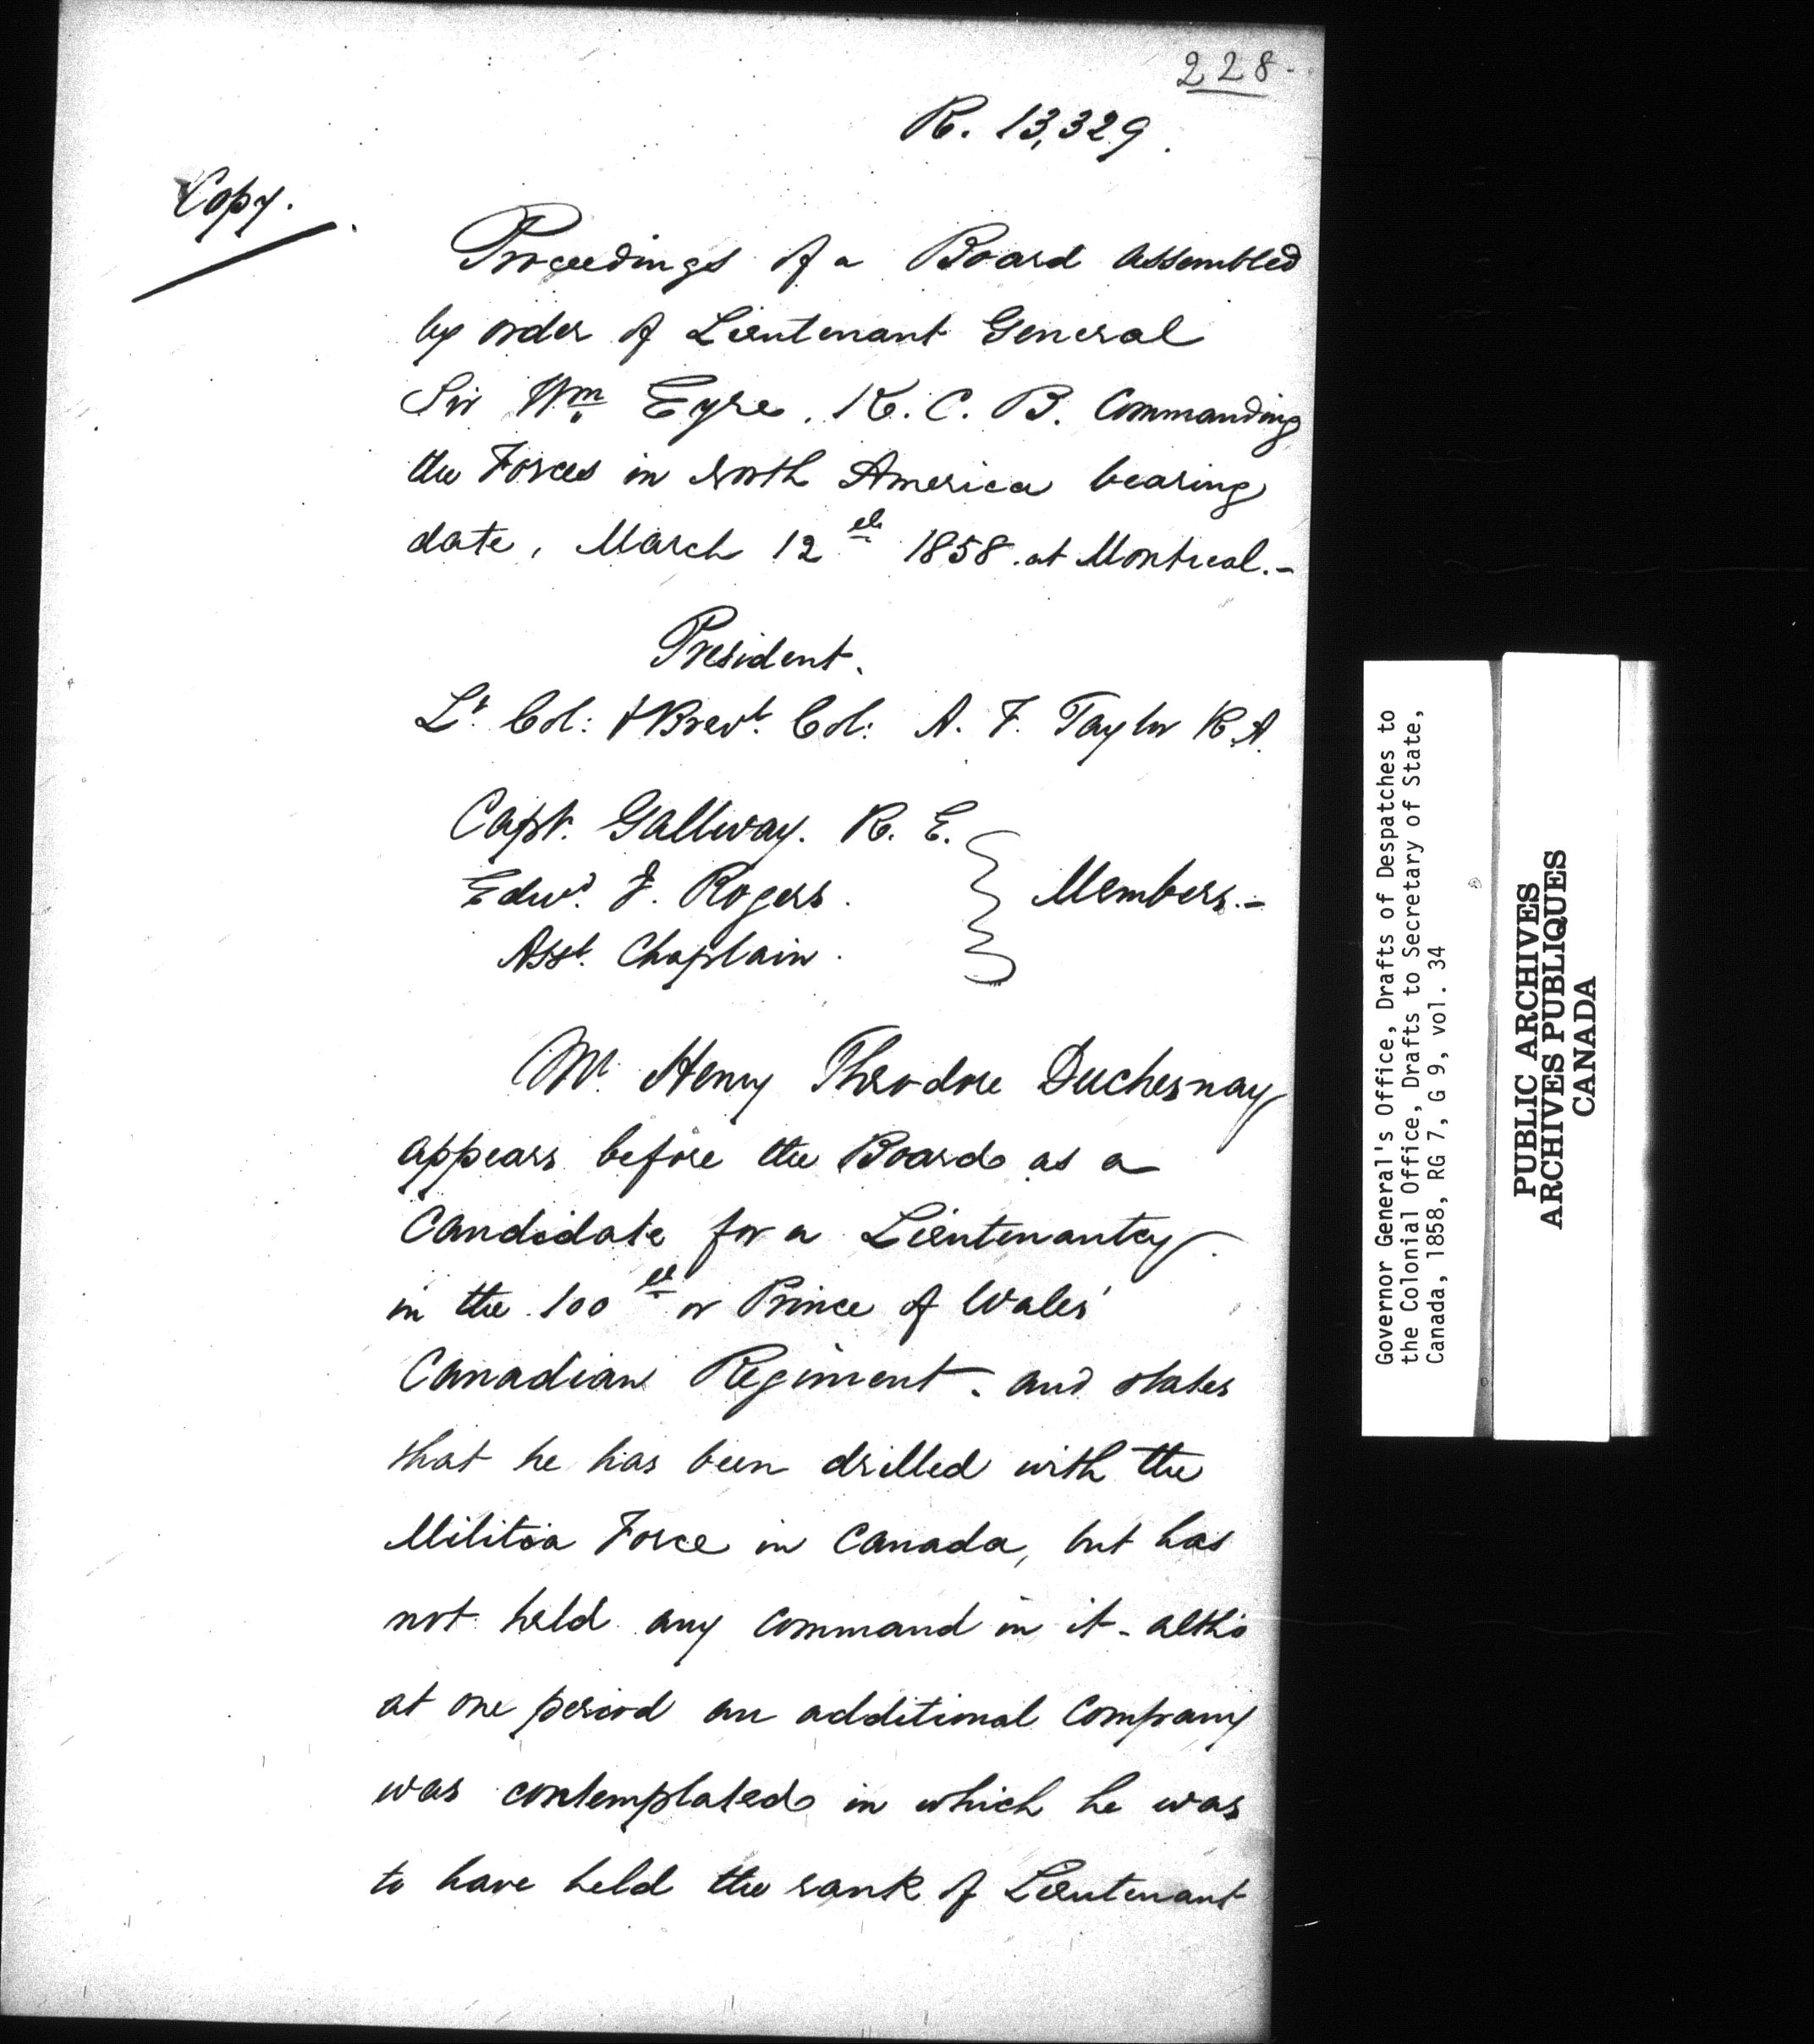 228.
R. 13,329.
Copy.
Proceedings of a Board assembled
by order of Lieutenant General
Sir Wm. Eyre, K. C. B. Commanding
the Forces in North America bearing
date, March 12th 1858. at Montreal.-
President.
Lt. Col: & Brevt. Col: A. F. Taylor R.A.
Capt. Gallway. R. E.
Edwd. J. Rogers.
Asst. Chaplain.
Members.-
Mr. Henry Theodore Duchesnay
appears before the Board as a
Candidate for a Lieutenantcy
in the 100th or Prince of Wales'
Canadian Regiment. and states
that he has been drilled with the
Militia Force in Canada, but has
not held any command in it - altho'
at one period an additional Company
was contemplated in which he was
to have held the rank of Lieutenant
Governor General's Office, Drafts of Despatches to
the Colonial Office, Drafts to Secretary of State,
Canada, 1858, RG 7, G 9, vol. 34
PUBLIC ARCHIVES
ARCHIVES PUBLIQUES
CANADA